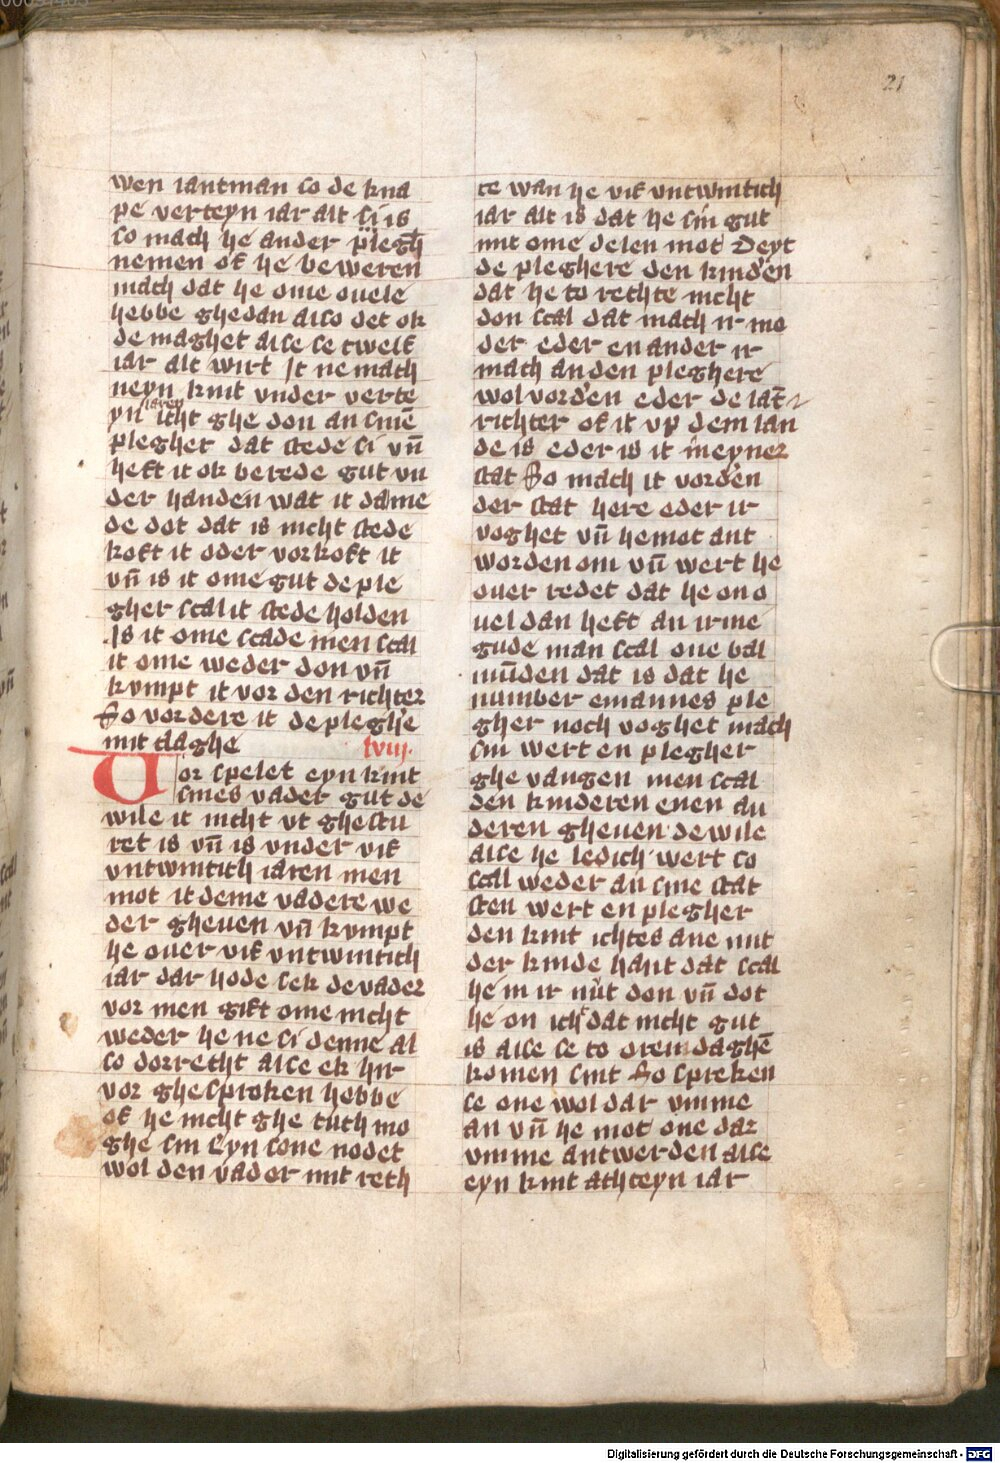 21
wen iantman so de kna
pe verteyn iar alt si is
so mach he ander plegh̄
nemen ok he beweren
mach dat he ome ouele
hebbe ghedan also det ok
de maghet alse se twelf
iar alt wirt It ne mach
neyn kint vnder verte
yn iaren icht ghe don an sinē
plegher dat stede si vn̄
heft it ok berede gut vn
der handen wat it dame
de dot dat is nicht stede
koft it oder vorkoft it
vn̄ is it ome gut de ple
gher scal it stede holden
Is it ome scade men scal
it ome weder don vn̄
kvmpt it vor den richter
So vordere it de pleghe
mit claghe lviij.
Vor spelet eyn kint
sines vader gut de
wile it nicht vt ghestu
ret is vn̄ is vnder vif
vntwintich iaren men
mot it deme vadere we
der gheuen vn̄ kvmpt
he ouer vif vntwintich
iar dar hode sek de vader
vor men gift ome nicht
weder he ne si denne al
so dorrecht alse ek hir
vor ghesproken hebbe
ok he nicht ghe tuch mo
ghe sin Eyn sone nodet
wol den vader mit reth
te wan he vif vntwintich
iar alt is dat he sin gut
mit ome delen mot Deyt
de pleghere den kinden
dat he to rechte nicht
don scal dat mach ir mo
der eder en ander ir
mach an den pleghere
wol vorden eder de lāt
richter ok it vp dem lan
de is eder is it in eyner
stat So mach it vorden
der stat here eder ir
voghet vn̄ he mot ant
worden om vn̄ wert he
ouer redet dat he on o
uel dan heft an irme
gude man scal one bal
mūden dat is dat he
nummer emannes ple
gher noch voghet mach
sin wert en plegher
ghe vangen men scal
den kinderen enen an
deren gheuen de wile
alse he ledich wert so
scal weder an sine stat
sten wert en plegher
den kint ichtes ane mit
der kinde hant dat scal
he in ir nut don vn̄ dot
he on icht dat nicht gut
is alse se to oren daghē
komen sint So spreken
se one wol dar vmme
an vn̄ he mot one dar
vmme antwerden alse
eyn kint achteyn iar
Digitalisierung gefördert durch die Deutsche Forschungsgemeinschaft - DFG